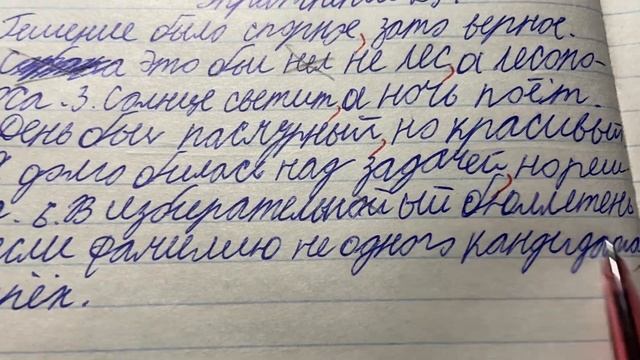 Решение было спорное, зато верное.
Это был не лес, а лесопо-
оса. 3. Солнце светит, а ночь поёт.
День был пасмурный, но красивый
Я долго билась над задачей, но реш
а. 5. В избирательной ый бюллетень
если фамилию не одного кандидата
пёх.